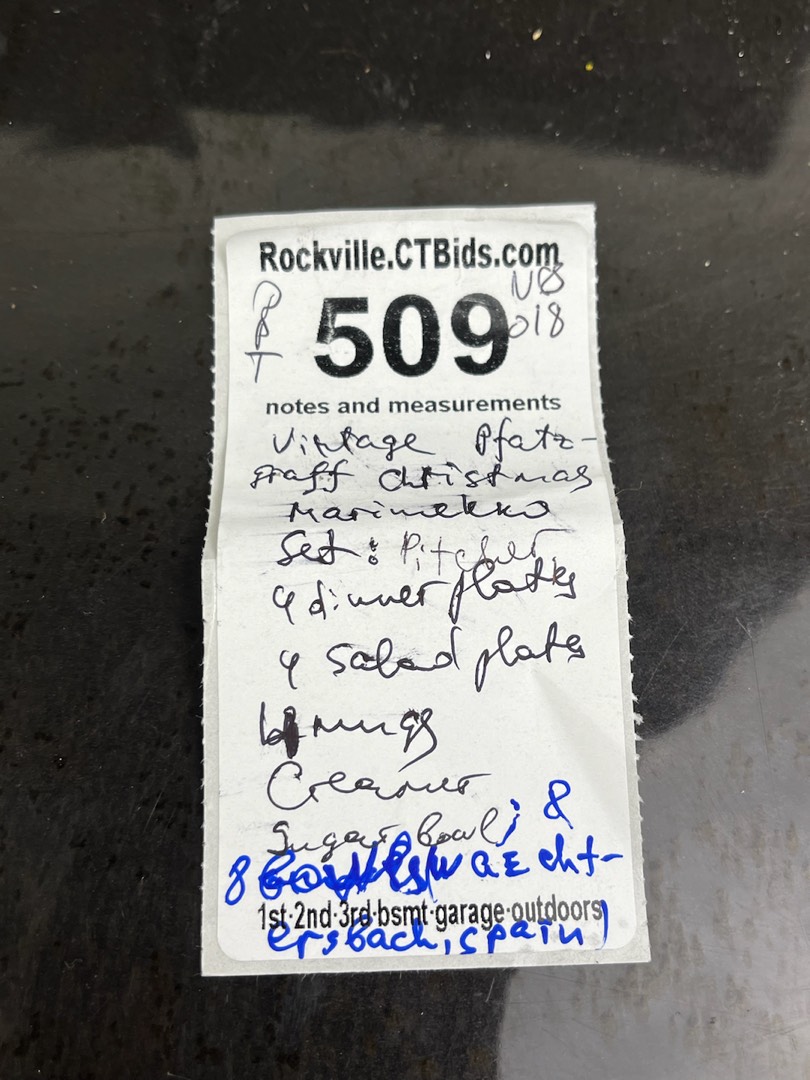 Rockville.CTBids.com
509
018
notes and measurements
Vintage Pfatz-
graff Christmas
Marimekko
Set: Pitcher,
4 dinner plates
4 salad plates
mugs
Creamer
Sugar bowl; &
8 Waecht-
1st·2nd·3rd·bsmt·garage·outdoors
ersbach, Spain)